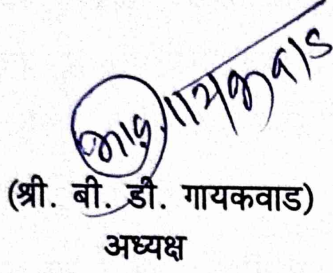 (श्री. बी. डी. गायकवाड)
अध्यक्ष